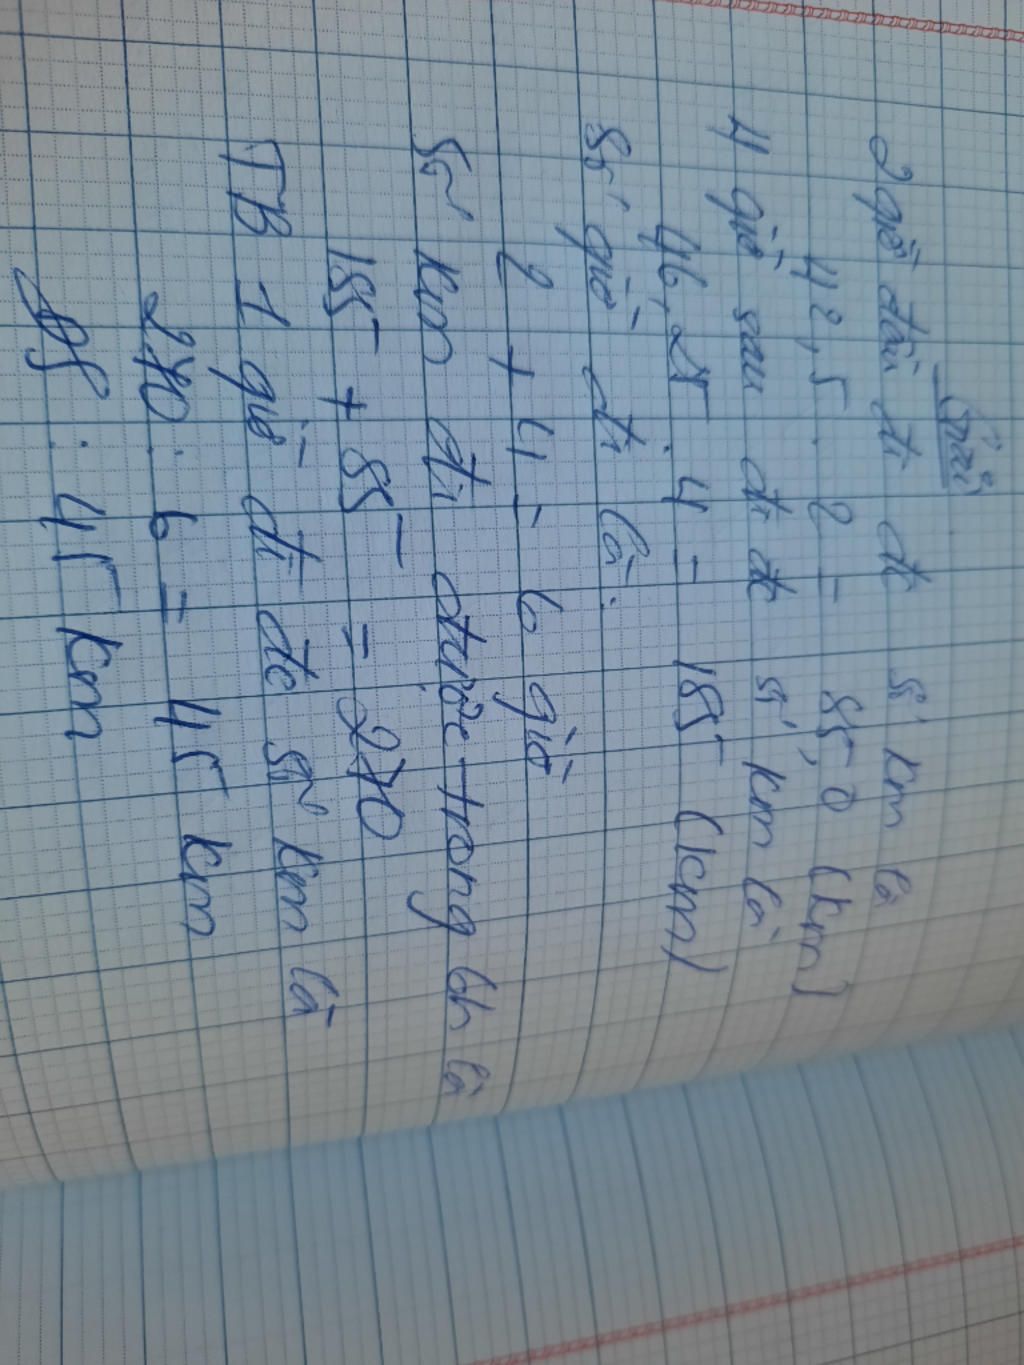 Giải
2 giờ đầu đi đc số km là
42,5 . 2 = 85,0 (km)
4 giờ sau đi đc số km là
46,25 . 4 = 185 (km)
Số giờ đi là:
2 + 4 = 6 giờ
Số km đi được trong 6h là
185 + 85 = 270
TB 1 giờ đi đc số km là
270 : 6 = 45 km
ĐS : 45 km